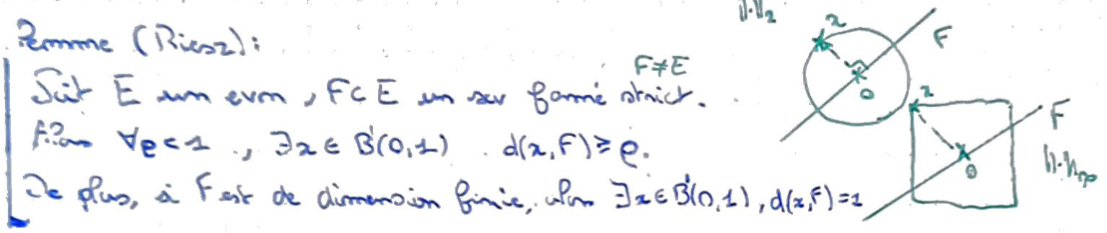 Lemme (Riesz):
Soit E un evn, F⊂E un sev fermé strict. F≠E
Alors ∀ρ<1, ∃x∈B(0,1) d(x,F)≥ρ.
De plus, si F est de dimension finie, alors ∃x∈B(0,1), d(x,F)=1
‖·‖₂
x
F
0
x
F
0
‖·‖∞